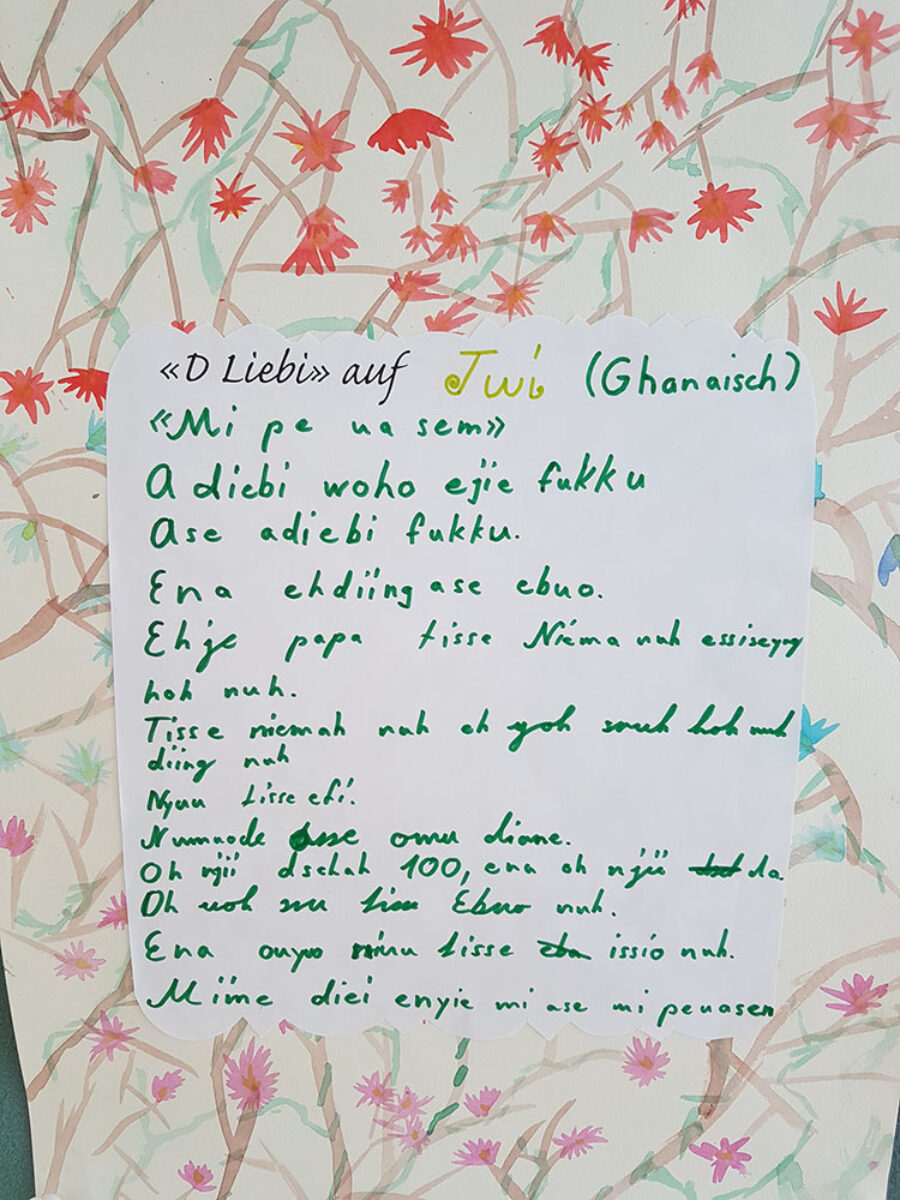 «D Liebi» auf Twi (Ghanaisch)
«Mi pe ua sem»
Adiebi woho ejie fukku
Ase adiebi fukku.
Ena ehdiing ase ebuo.
Ehje papa tisse Niema nuh
hoh nuh.
Tisse niemah nuh eh hoh nuh
diing nuh
tisse efi.
omu diane.
Oh njii dschah 100, ena oh njii da.
Oh Ebuo nuh.
Ena tisse issio nuh.
Miime diei enyie mi ase mi peuasem